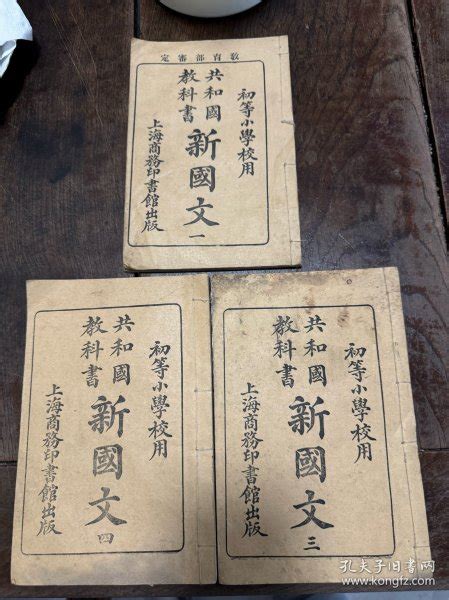 教育部審定
初等小學校用
共和國
教科書
新國文
一
上海商務印書館出版
初等小學校用
共和國
教科書
新國文
四
上海商務印書館出版
初等小學校用
共和國
教科書
新國文
三
上海商務印書館出版
孔夫子旧书网
www.kongfz.com